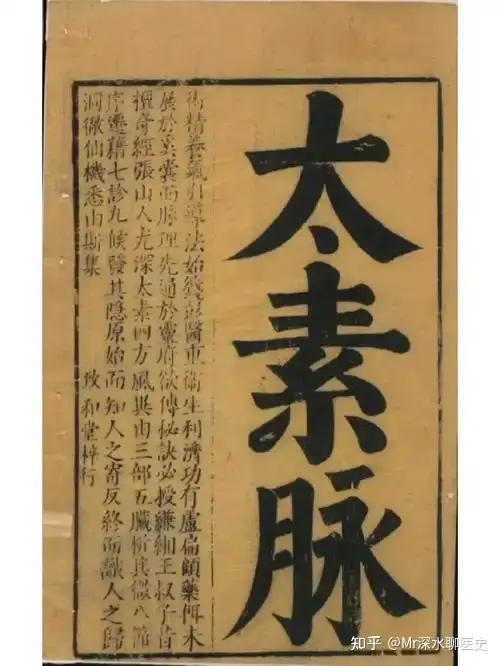 太素脉
術精養氣引導法始籛彭醫重衛生利濟功有盧扁顧藥餌未
展於奚囊而脉理先通於靈府欲傳秘訣必授縑緗王叔子昔
擅奇經張山人尤深太素四方風異由三部五臟析其微八節
序靈籍七診九候發其隱原始而知人之寄反終而識人之歸
洞微仙機悉由斯集
致和堂梓行
知乎 @Mr深水聊医史